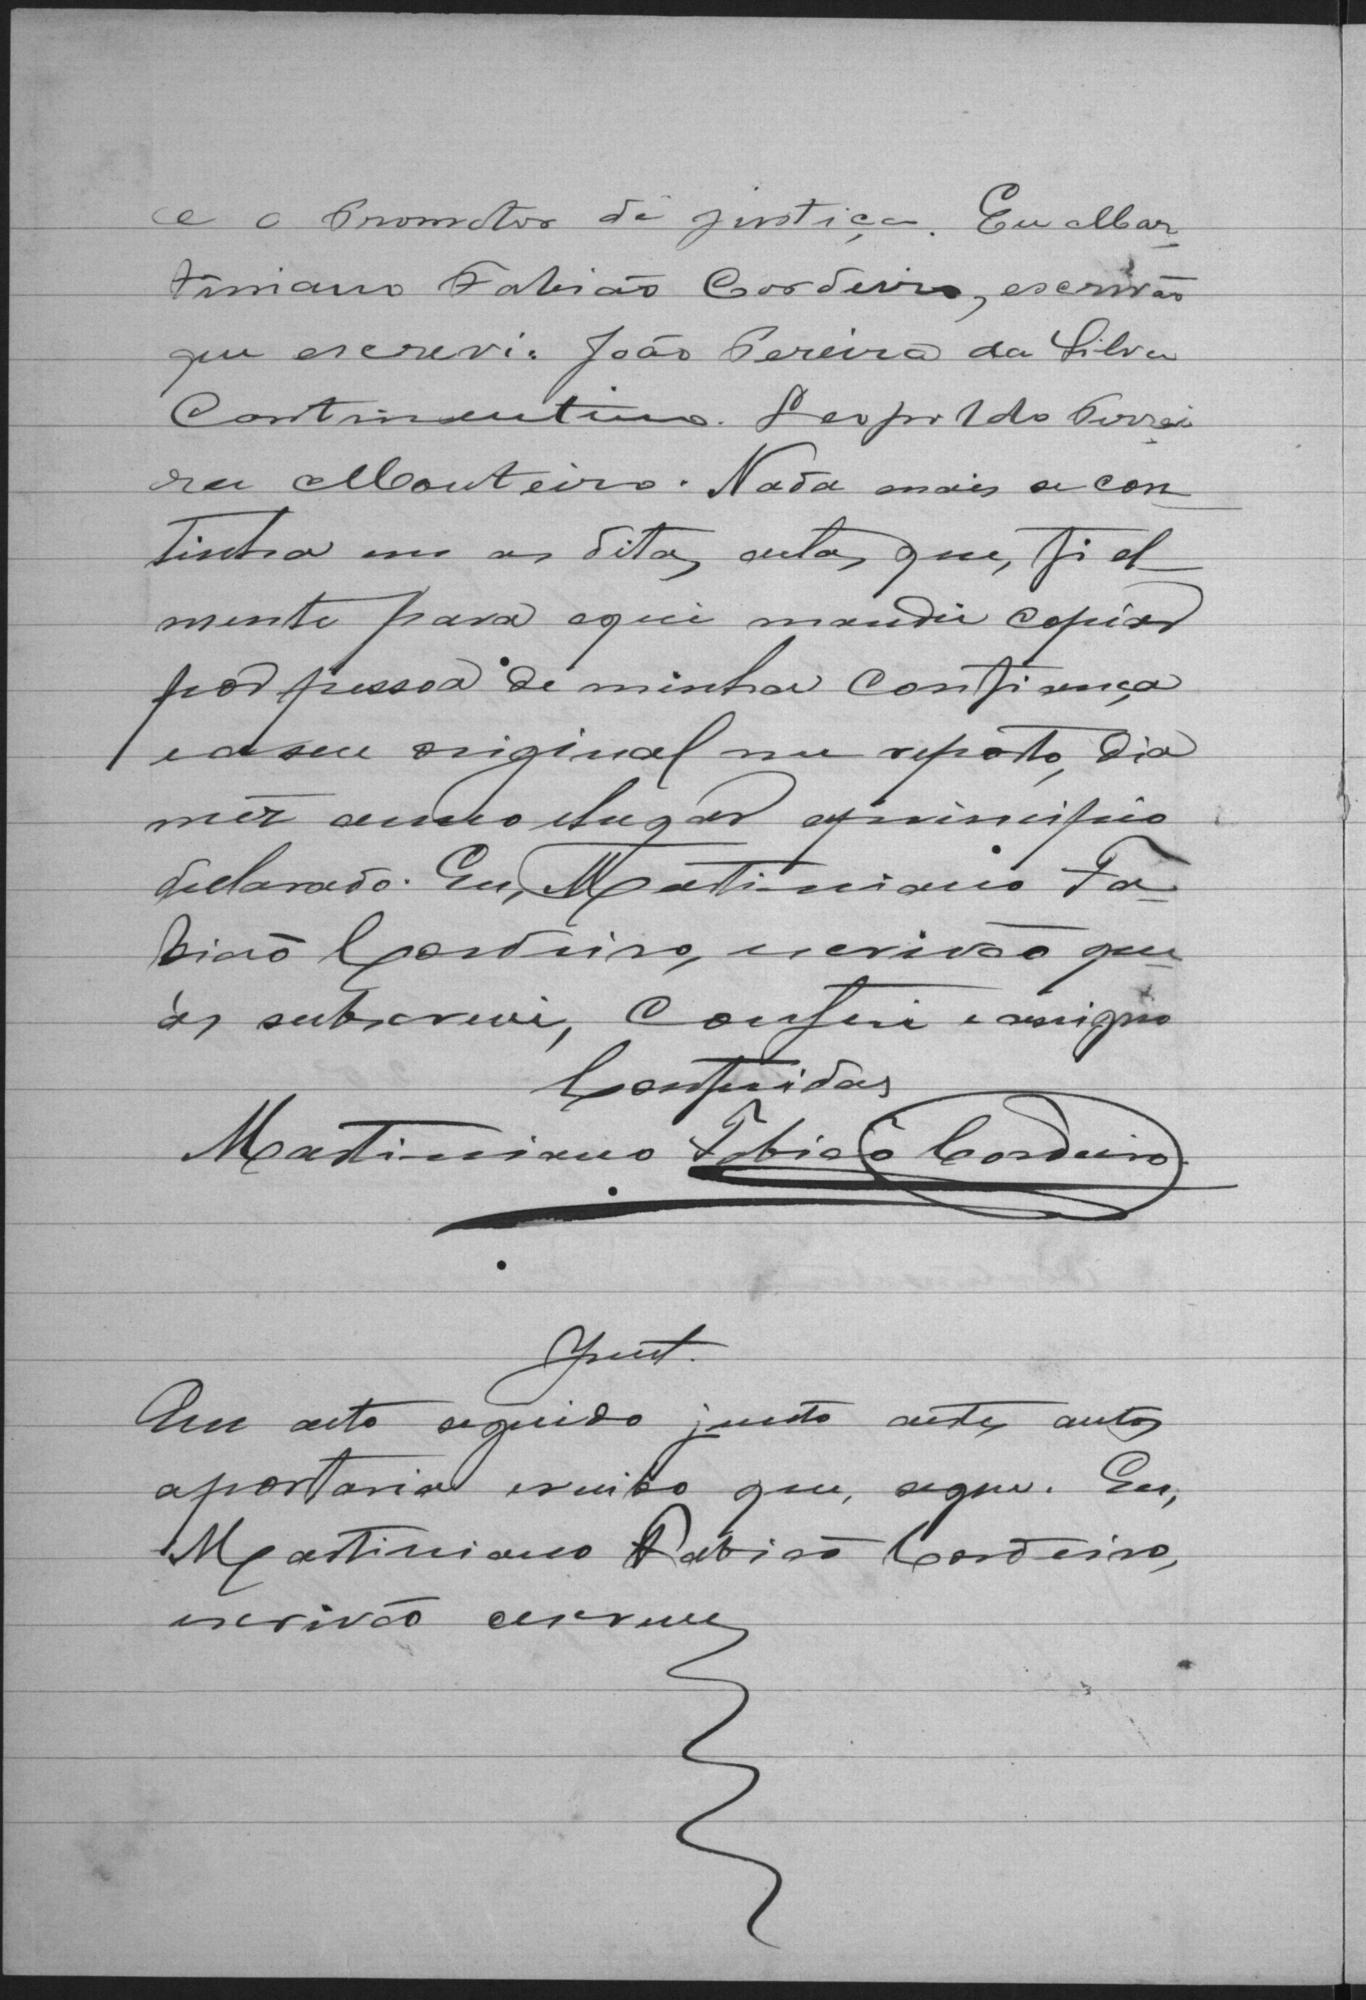 e o Promotor de justiça. Eu Mar-
tiniano Fabião Cordeiro, escrivão
que escrevi. João Pereira da Silva
Continentino. Leopoldo Ferrei-
ra Monteiro. Nada mais se con-
tinha em as ditas, que, fiel
mente para aqui mandei copiar
por pessoa de minha confiança
e a seu original me reporto, dia
mez anno e lugar a principio
declarado. Eu, Martiniano Fa-
bião Cordeiro, escrivão que
as subscrevi, conferi e assigno
Conferidas
Martiniano Fabião Cordeiro
Junt.
Em acto seguido junto a estes autos
a portaria que, segue. Eu,
Martiniano Fabião Cordeiro,
escrivão escrevi